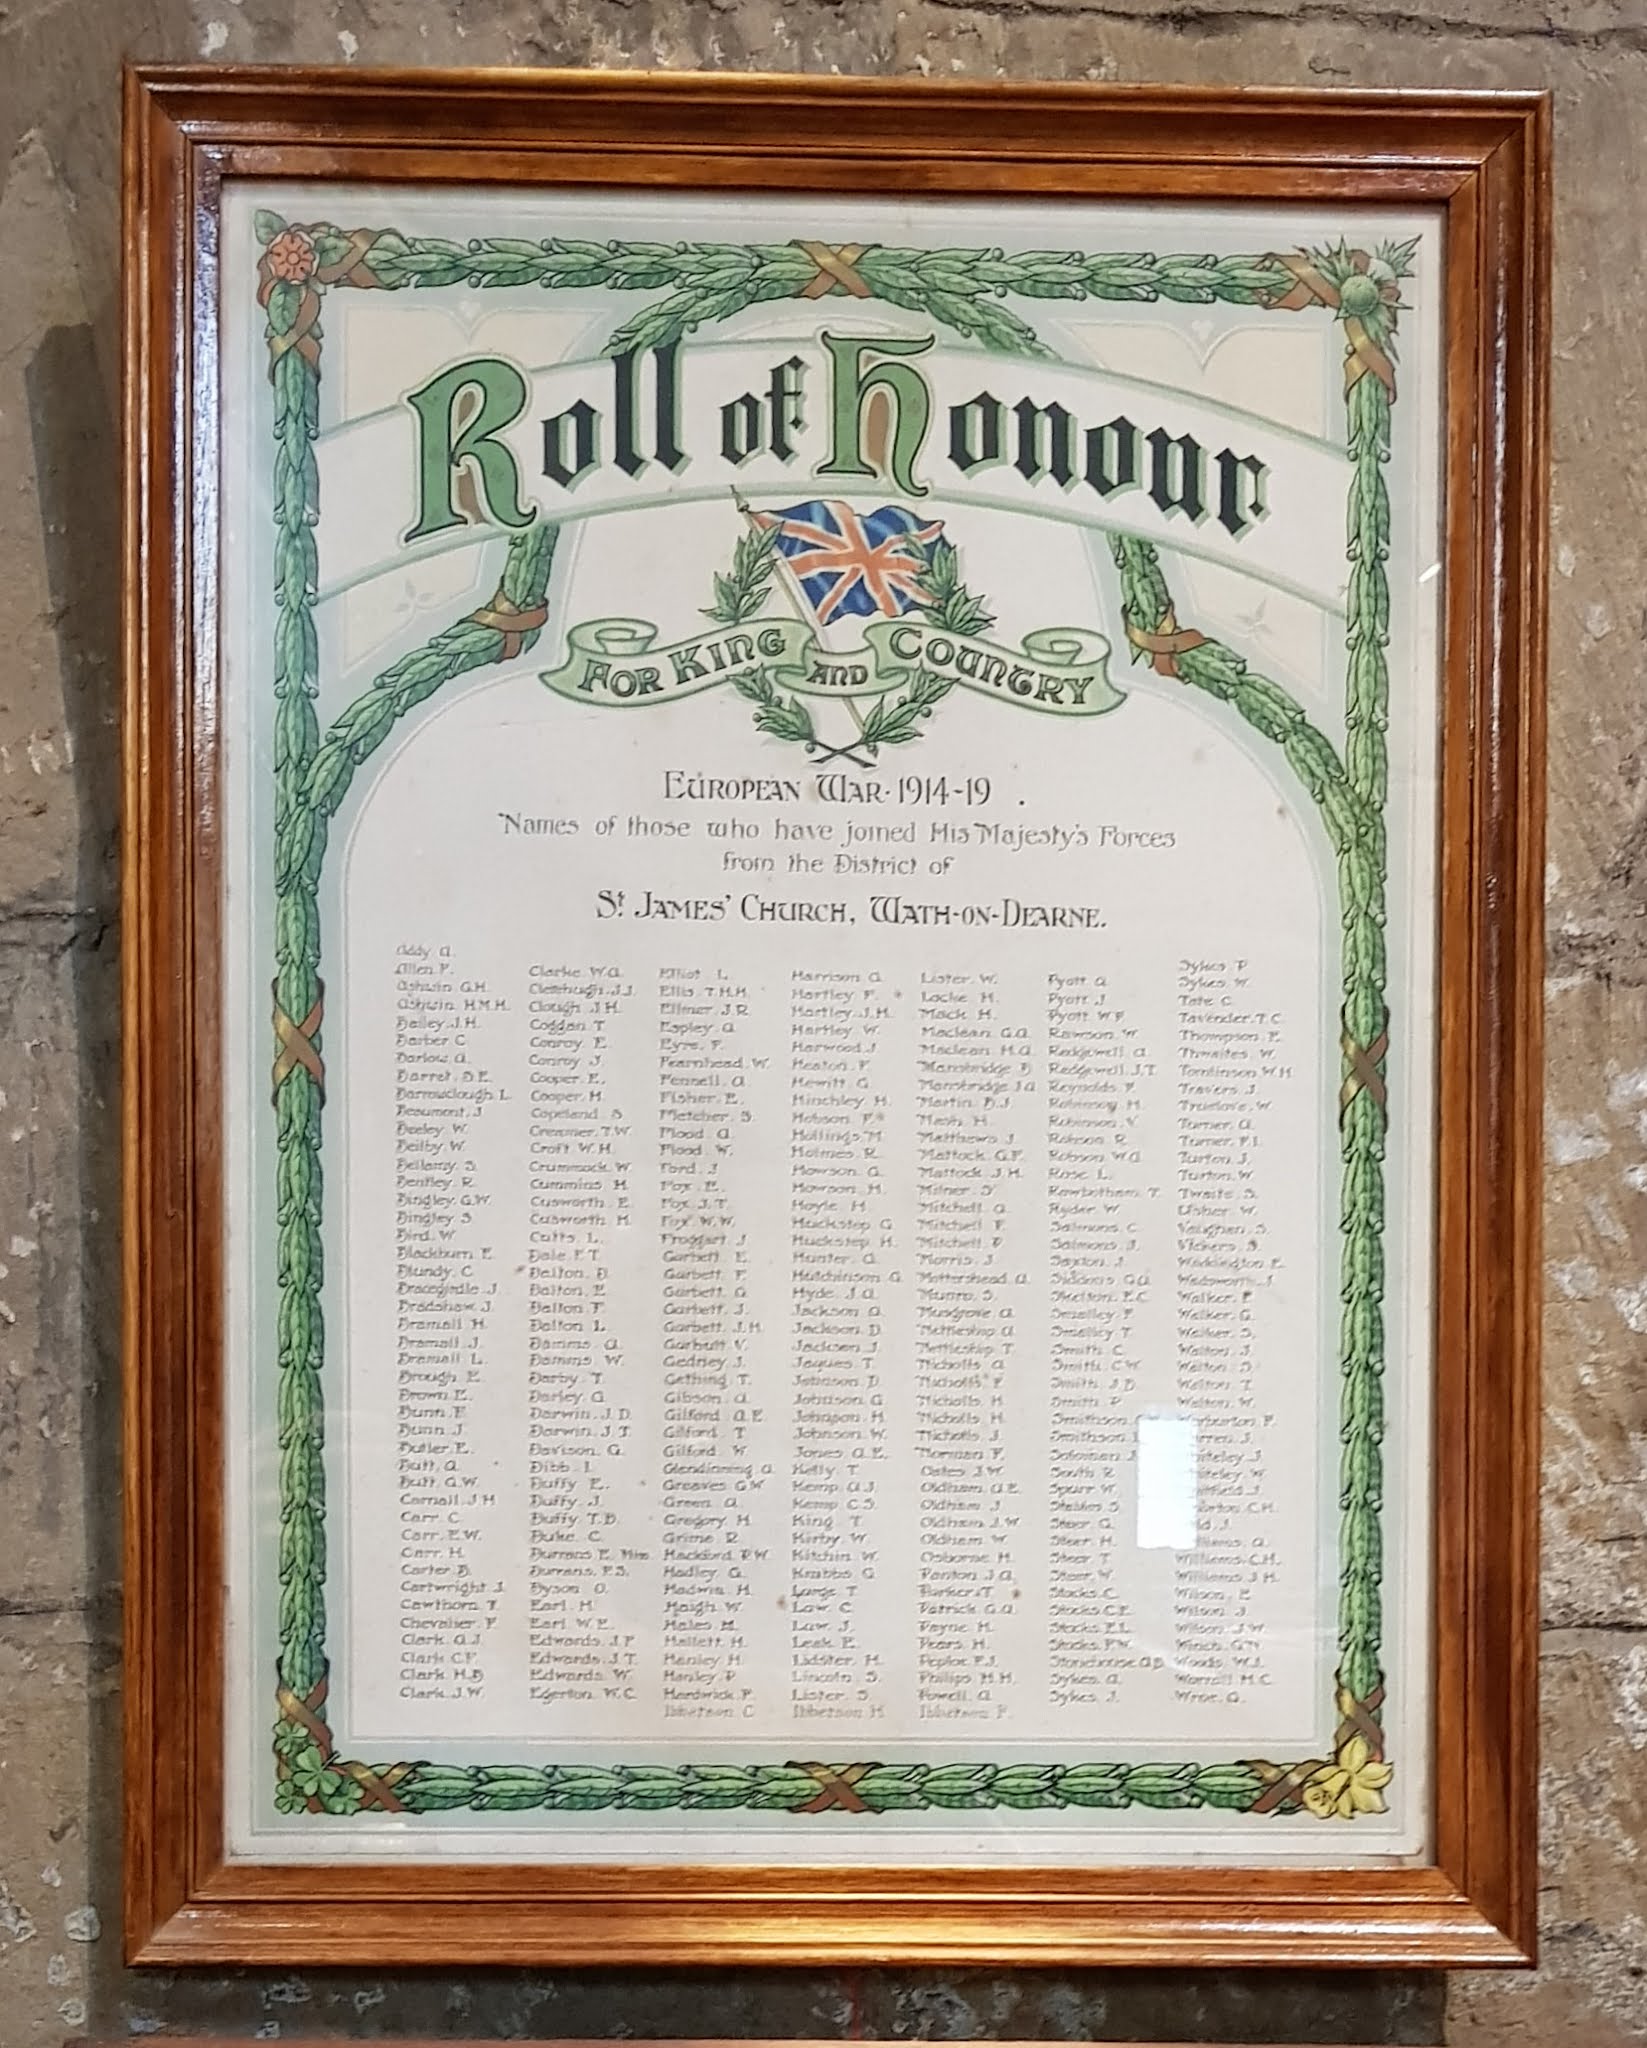 Roll of Honour
FOR KING AND COUNTRY
EUROPEAN WAR· 1914-19 .
Names of those who have joined His Majesty's Forces
from the District of
St JAMES' CHURCH, WATH-ON-DEARNE.
Addy. A.
Allen. F.
Ashwin. G.H.
Ashwin. H.M.H.
Bailey. J.H.
Barber. C
Barlow. A.
Barret. D.E.
Barrowclough. L.
Beaumont. J
Beeley. W.
Beilby. W.
Bellamy. S.
Bentley. R.
Bingley. G.W.
Bingley. S.
Bird. W.
Blackburn. E.
Blundy. C.
Bracegirdle. J.
Bradshaw. J.
Bramall. H.
Bramall. J.
Bramall. L.
Brough. E.
Brown. E.
Bunn. F.
Bunn. J.
Butler. E.
Butt. A.
Butt. G.W.
Carnall. J.H
Carr. C.
Carr. E.W.
Carr. H.
Carter. B.
Cartwright. J.
Cawthorn. T.
Chevalier. F
Clark. A.J.
Clark. C.F.
Clark. H.B
Clark. J.W.
Clarke. W.A.
Clebhugh. J.J.
Clough. J.H.
Coggan. T
Conroy. E.
Conroy. J.
Cooper. E.
Cooper. H.
Copeland. S
Creamer. T.W.
Croft. W.H.
Crummack. W.
Cummins. H
Cusworth. E.
Cusworth. H.
Cutts. L.
Dale. F.T.
Dalton. D.
Dalton. E
Dalton. F.
Dalton. L.
Damms. A.
Damms. W.
Darby. T.
Darley. G.
Darwin. J.D.
Darwin. J.T.
Davison. G.
Dibb. I.
Duffy. E.
Duffy. J.
Duffy. T.B.
Duke. C.
Durrans. E. Miss.
Durrans. F.S.
Dyson. O.
Earl. H
Earl. W.E.
Edwards. J.P
Edwards. J.T.
Edwards. W.
Egerton. W.C.
Elliot. L.
Ellis. T.H.H.
Ellmer. J.R.
Espley. A
Eyre. F.
Fearnhead. W.
Fennell. A
Fisher. E.
Fletcher. S
Flood. A.
Flood. W.
Ford. J
Fox. E.
Fox. J.T.
Fox. W.W.
Froggatt. J
Garbett. E.
Garbett. F.
Garbett. G.
Garbett. J.
Garbett. J.H.
Garbutt. V.
Gedney. J.
Gething. T.
Gibson. A
Gilford. A.E.
Gilford. T
Gilford. W.
Glendinning. A
Greaves. G.W
Green. A.
Gregory. H
Grime. R
Hackford. R.W.
Hadley. G.
Hadwin. H.
Haigh. W.
Hales. M.
Hallett. H.
Hanley. H
Hanley. P
Hardwick. F.
Ibbetson. C
Harrison. A
Hartley. F.
Hartley. J.H.
Hartley. W.
Harwood. J
Heaton. F
Hewitt. G
Hinchley. H.
Hobson. F.
Hollings. H
Holmes. R.
Howson. G.
Howson. H.
Hoyle. H.
Huckstep. G
Huckstep. H.
Hunter. A.
Hutchinson. G
Hyde. J.A.
Jackson. A.
Jackson. D.
Jackson. J.
Jaques. T.
Johnson. D
Johnson. G
Johnson. H
Johnson. W.
Jones. A.E.
Kelly. T.
Kemp. A.J.
Kemp. C.S.
King. T.
Kirby. W.
Kitchin. W.
Krabbs. G
Large. T
Law. C
Law. J.
Leak. E.
Lidster. H.
Lincoln. S.
Lister. S.
Ibbetson. H
Lister. W.
Locke. H.
Mack. H.
Maclean. G.A.
Maclean. H.A.
Mansbridge. B
Mansbridge. J.A
Martin. B.J
Mash. H.
Matthews. J.
Mattock. G.F.
Mattock. J.H.
Milner. S
Mitchell. A.
Mitchell. F.
Mitchell. P
Morris. J
Mottershead. A.
Munro. S.
Musgrove. A
Nettleship. A
Nettleship. T.
Nicholls. A
Nicholls. F.
Nicholls. H.
Nicholls. H.
Nicholls. J.
Norman. F.
Oates. J.W.
Oldham. A.E.
Oldham. J
Oldham. J.W
Oldham. W
Osborne. H.
Panton. J.A.
Parker. T.
Patrick. G.A.
Payne. H
Pears. H.
Peploe. F.J.
Philips. H.H.
Powell. A.
Ibbetson. F.
Pyott. A
Pyott. J
Pyott. W.F.
Rawson. W
Redgewell. A.
Redgewell. J.T.
Reynolds. F.
Robinson. H.
Robinson. V.
Robson. R
Robson. W.A
Rose. L.
Rowbotham. T.
Ryder. W
Salmons. C.
Salmons. J.
Saxton. J
Siddons. G.A.
Skelton. E.C
Smalley. F
Smalley. T.
Smith. C
Smith. C.W
Smith. J.D
Smith. P
Smithson.
Smithson.
Soloman. J
South. R
Spurr. W.
Stables. S
Steer. G.
Steer. H.
Steer. T
Steer. W.
Stocks. C.
Stocks. C.E.
Stocks. E.L.
Stocks. F.W.
Stonehouse. A.B
Sykes. A.
Sykes. J.
Sykes. P
Sykes. W.
Tate. C.
Tavender. T.C.
Thompson. E.
Thwaites. W.
Tomlinson. W.H.
Travers. J.
Truelove. W.
Turner. A.
Turner. F.I.
Turton. J.
Turton. W.
Twaite. S.
Usher. W.
Vaughan. S.
Vickers. S.
Waddington. E.
Wadsworth. J
Walker. F
Walker. G.
Walker. S.
Walton. J.
Walton. S
Walton. T.
Walton. W.
Warburton. F.
J.
J.
W
J.
C.H.
J.
A.
Williams. C.H.
Williams. J.H
Wilson. E
Wilson. J.
Wilson. J.W
Winch. G.W
Woods. W.J.
Worrall. H.C.
Wroe. G.